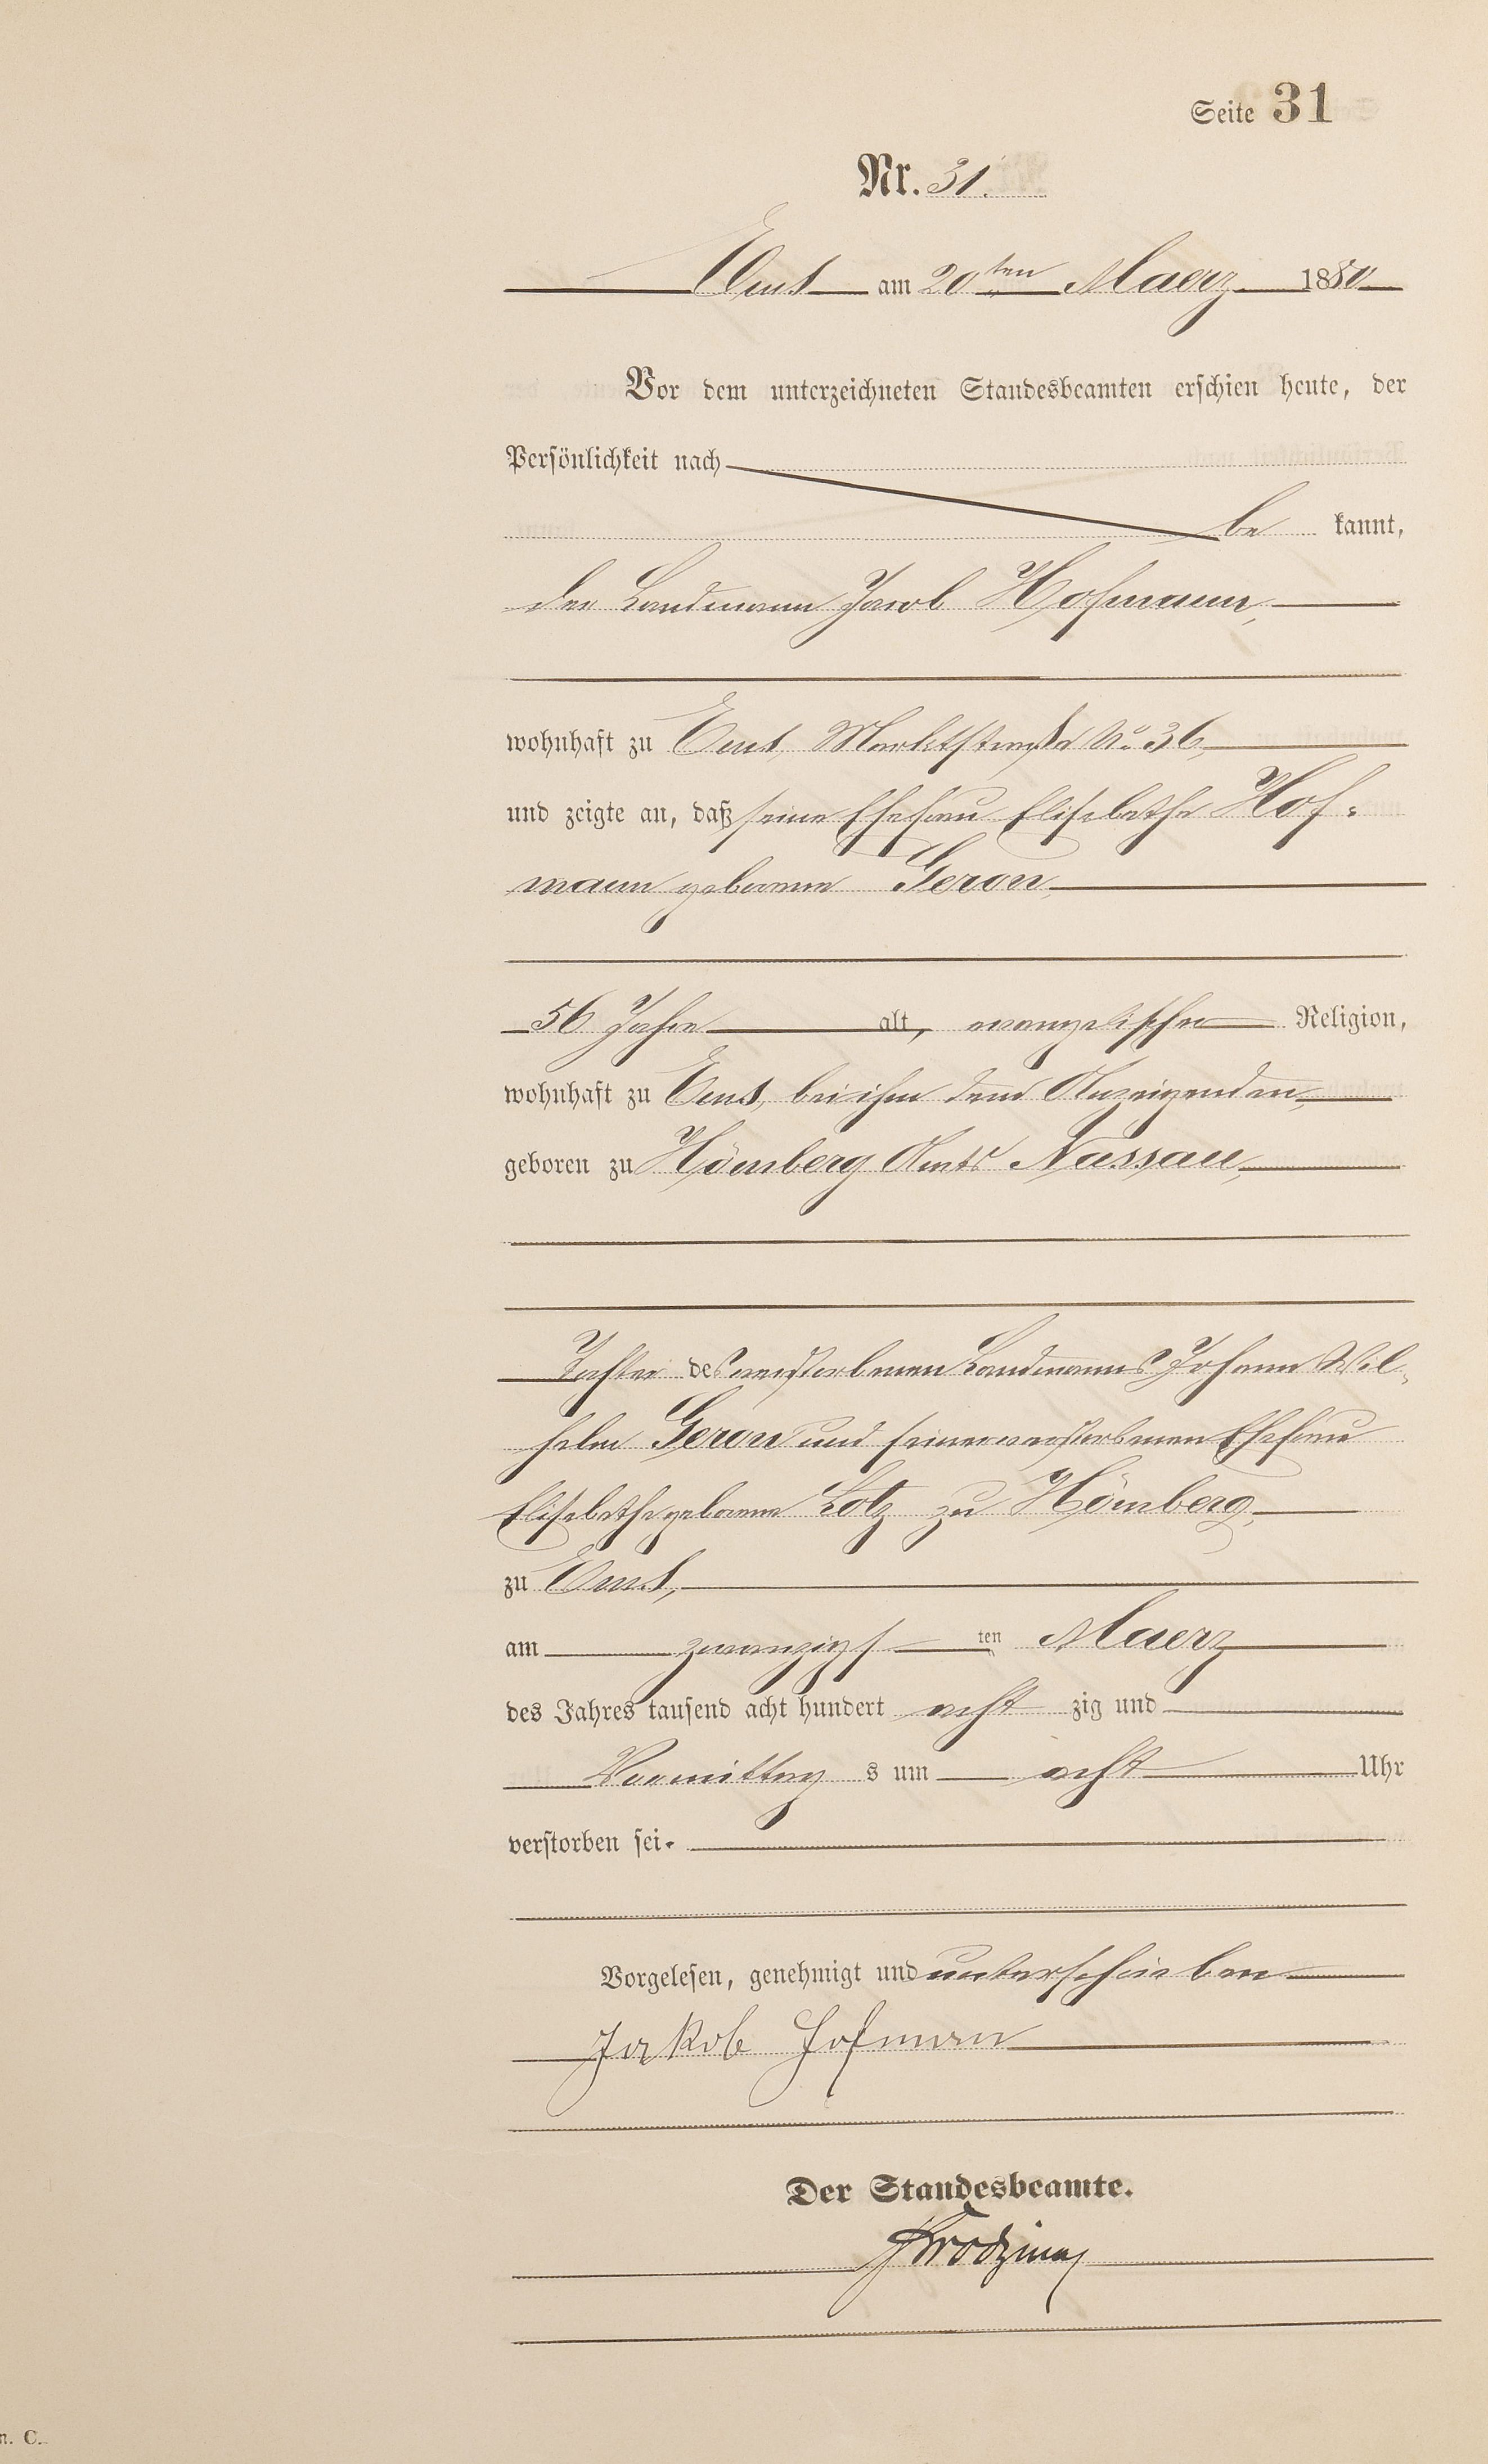 Seite 31
Nr. 31.
Ems am 20ten Maerz 1880
Vor dem unterzeichneten Standesbeamten erschien heute, der
Persönlichkeit nach
be kannt,
der Landmann Jacob Hofmann,
wohnhaft zu Ems, Marktstraße No. 36,
und zeigte an, daß seine Ehefrau Elisabethe Hof-
mann geborene Geron,
56 Jahre alt, evangelischer Religion,
wohnhaft zu Ems, bei ihm dem Anzeigenden,
geboren zu Hömberg Amts Nassau,
Tochter des verstorbenen Landmanns Johann Wil-
helm Geron und seiner verstorbenen Ehefrau
Elisabethe geborene Lotz zu Hömberg,
zu Ems,
am zwanzigsten Maerz
des Jahres tausend acht hundert acht zig und
Vormittag s um acht Uhr
verstorben sei.
Vorgelesen, genehmigt und unterschrieben
Jakob Hofman
Der Standesbeamte.
n. C.